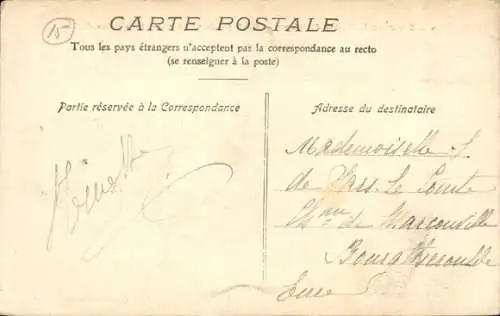 15
CARTE POSTALE
Tous les pays étrangers n'acceptent pas la correspondance au recto
(se renseigner à la poste)
Partie réservée à la Correspondance
Adresse du destinataire
Mademoiselle J.
de Le Comte
Ch.au de Marcouville
Bourgtheroulde
Eure